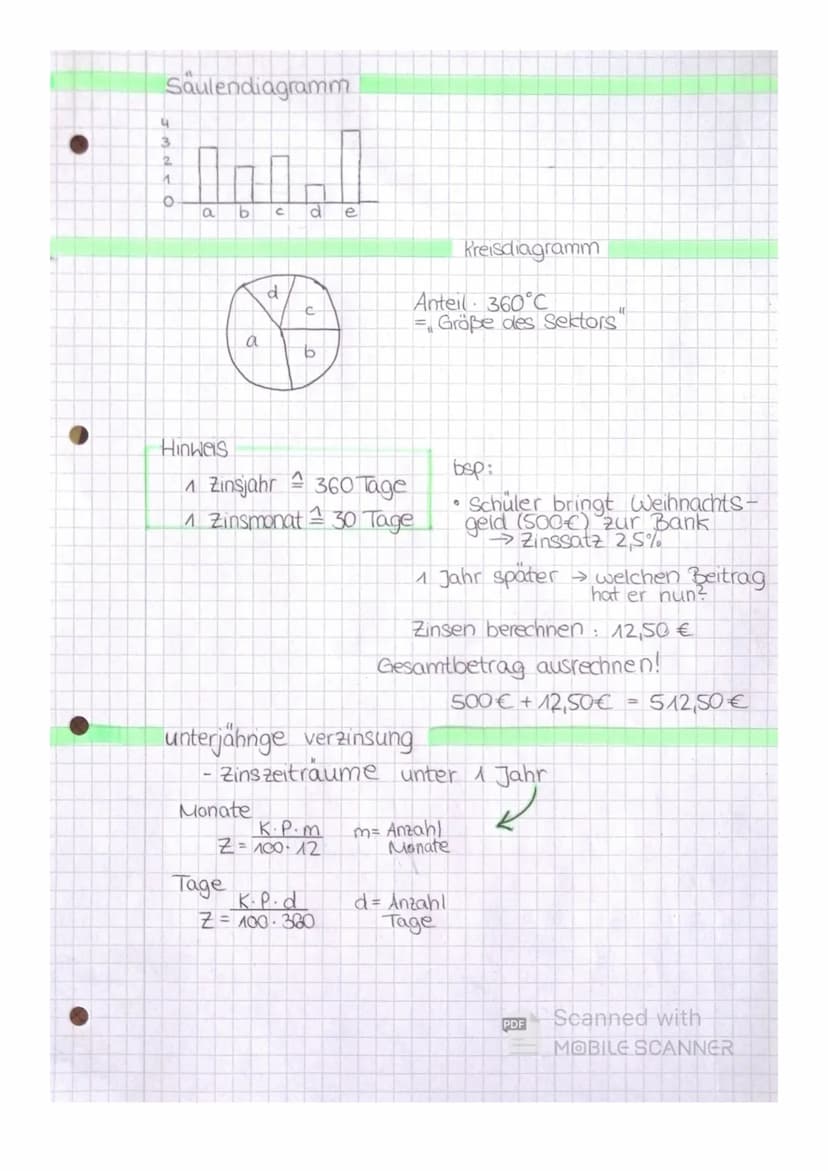 Säulendiagramm
4
3
2
1
0
a b c d e
Kreisdiagramm
d
c
a
b
Anteil · 360°C
= „Größe des Sektors"
Hinweis
1 Zinsjahr ≙ 360 Tage
1 Zinsmonat ≙ 30 Tage
bsp:
• Schüler bringt Weihnachts-
geld (500€) zur Bank
→ Zinssatz 2,5%
1 Jahr später → welchen Beitrag
hat er nun?
Zinsen berechnen : 12,50 €
Gesamtbetrag ausrechnen!
500€ + 12,50€ = 512,50€
unterjährige verzinsung
- Zinszeiträume unter 1 Jahr
Monate
K·P·m m= Anzahl
Z = 100·12 Monate
Tage
K·P·d d= Anzahl
Z = 100·360 Tage
PDF Scanned with
MOBILE SCANNER